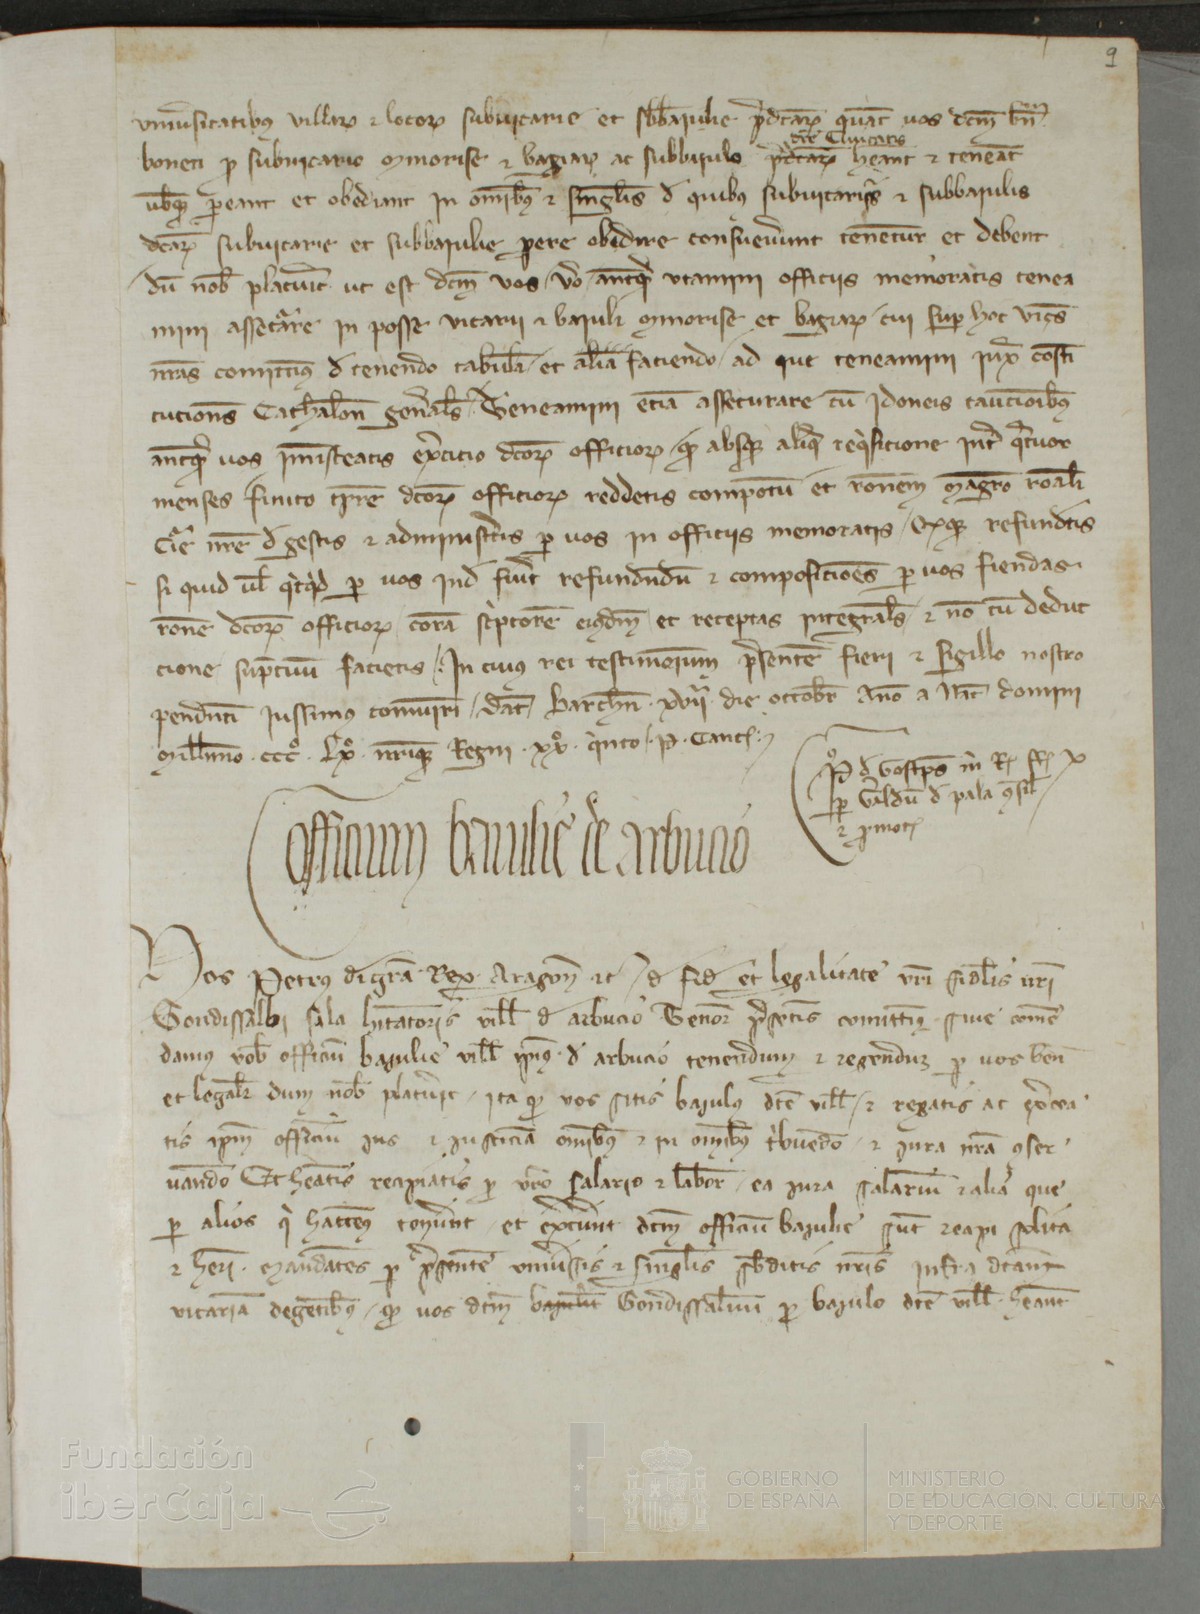 9
universitatibus villarum et locorum subvicarie et subbaiulie predictarum quatenus vos dictum Bernardum
dicte Civitatis
boneti pro subvicario minorise et bagiarum ac subbaiulo predictarum habeant et teneant
pareant et obediant in omnibus et singulis de quibus subvicariis et subbaiulis
dictarum subvicarie et subbaiulie parere obedire consueverunt tenentur et debent
dum nobis placuerit ut est dictum vos vero antequam utamini officiis memoratis tenea
mini assecurare in posse vicarii et baiuli minorise et bagiarum cui super hoc vices
nostras comittimus de tenendo tabulam et alia faciendo ad que teneamini iuxta consti
tutiones Cathalonie generales Teneamini etiam assecurare cum idoneis caucionibus
antequam vos inmisceatis exercicio dictorum officiorum quod absque aliqua requisicione infra quatuor
menses finito tempore dictorum officiorum reddetis compotum et racionem magistro racionali
Curie nostre de gestis et administratis per vos in officiis memoratis refundetis
si quid vel quicquid per vos inde fuerit refundendum et composiciones per vos fiendas
racione dictorum officiorum coram scriptore eiusdem et receptas integrales et non cum deduc
cione sumptuum facietis In cuius rei testimonium presentem fieri et sigillo nostro
pendenti iussimus comuniri Datum Barchinone xvii die octobris Anno a Nat domini
Millesimo ccc Lx nostrique Regni xx quinto P Canc
P de Gostemps in
per Geraldum de pala consil
et promot
Officium baiulie de arbucio
Nos Petrus dei gracia Rex Aragonum etc de fide et legalitate vestri fidelis nostri
Gondissalbi sala habitatoris ville de arbucio Tenore presentis comittimus sive comen
damus vobis officium baiulie ville ipsius de arbucio tenendum et regendum per vos bene
et legaliter dum nobis placuerit ita quod vos sitis baiulus dicte ville et regatis ac exercea
tis ipsum officium ius et iusticiam omnibus et in omnibus tribuendo et iura nostra conser
vando Et habeatis recipiatis pro vestro salario et labore ea iura salarium et alia que
per alios qui hactenus tenuerunt et exercuerunt dictum officium baiulie sunt recipi solita
et haberi mandantes per presentem universis et singulis subditis nostris infra dictam
vicariam degentibus quod vos dictum Gondissalvum pro baiulo dicte ville habeant
Fundación
iberCaja
GOBIERNO
DE ESPAÑA
MINISTERIO
DE EDUCACIÓN, CULTURA
Y DEPORTE